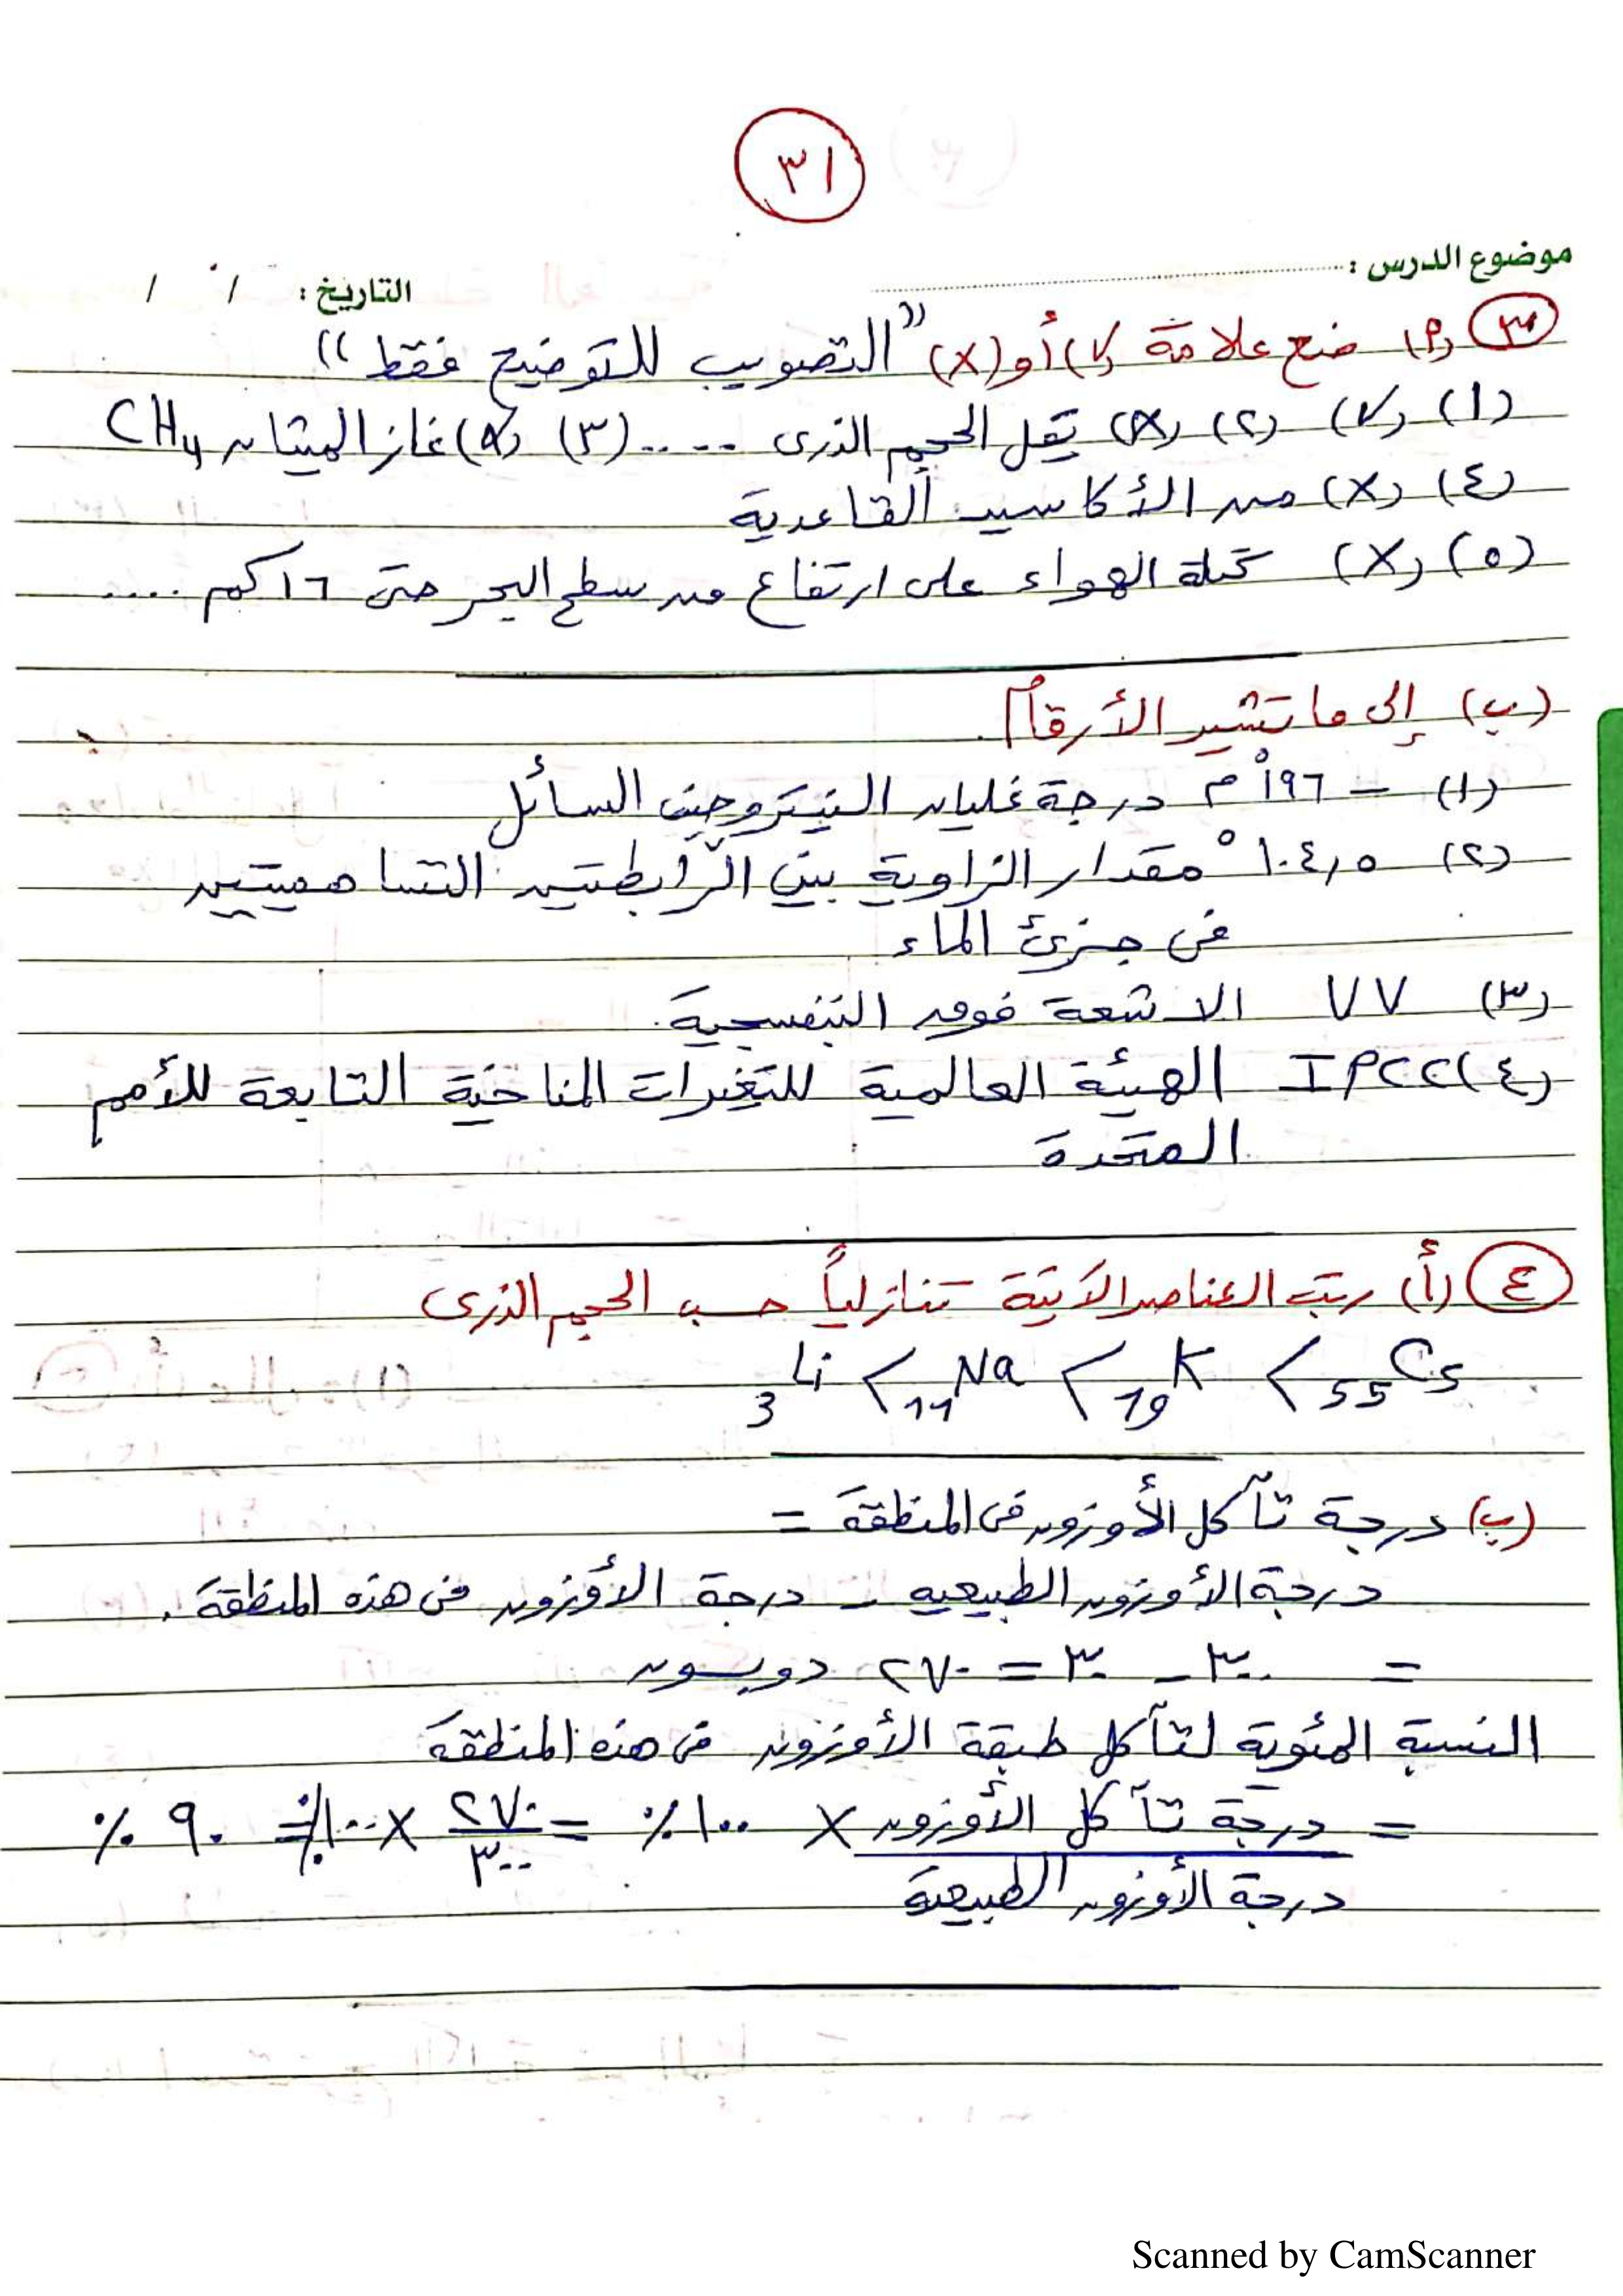 ٣١
موضوع الدرس : ............
التاريخ : / /
٣ (أ) ضع علامة (√) أو (X) "التصويب للتوضيح فقط"
(١) (√) (٢) (X) يقل الحجم الذرى ..... (٣) (X) غاز الميثان CH4
(٤) (X) من الأكاسيد القاعدية
(٥) (X) كتلة الهواء على ارتفاع من سطح البحر حتى ١٦ كم ....
(ب) إلى ما تشير الأرقام .
(١) – ١٩٦°م درجة غليان النيتروجين السائل
(٢) ١٠٤,٥° مقدار الزاوية بين الرابطتين التساهميتين
فى جزئ الماء
(٣) UV الاشعة فوق البنفسجية .
(٤) IPCC الهيئة العالمية للتغيرات المناخية التابعة للأمم
المتحدة
٤ (أ) رتب العناصر الآتية تنازلياً حسب الحجم الذرى
3Li < 11Na < 19K < 55Cs
(ب) درجة تآكل الأوزون فى المنطقة =
درجة الأوزون الطبيعيه – درجة الأوزون فى هذه المنطقة .
= ٣٠٠ – ٣٠ = ٢٧٠ دوبسون
النسبة المئوية لتآكل طبقة الأوزون فى هذه المنطقة
= درجة تآكل الأوزون × ١٠٠ ٪ = ٢٧٠ / ٣٠٠ × ١٠٠ ٪ = ٩٠ ٪
درجة الأوزون الطبيعية
Scanned by CamScanner